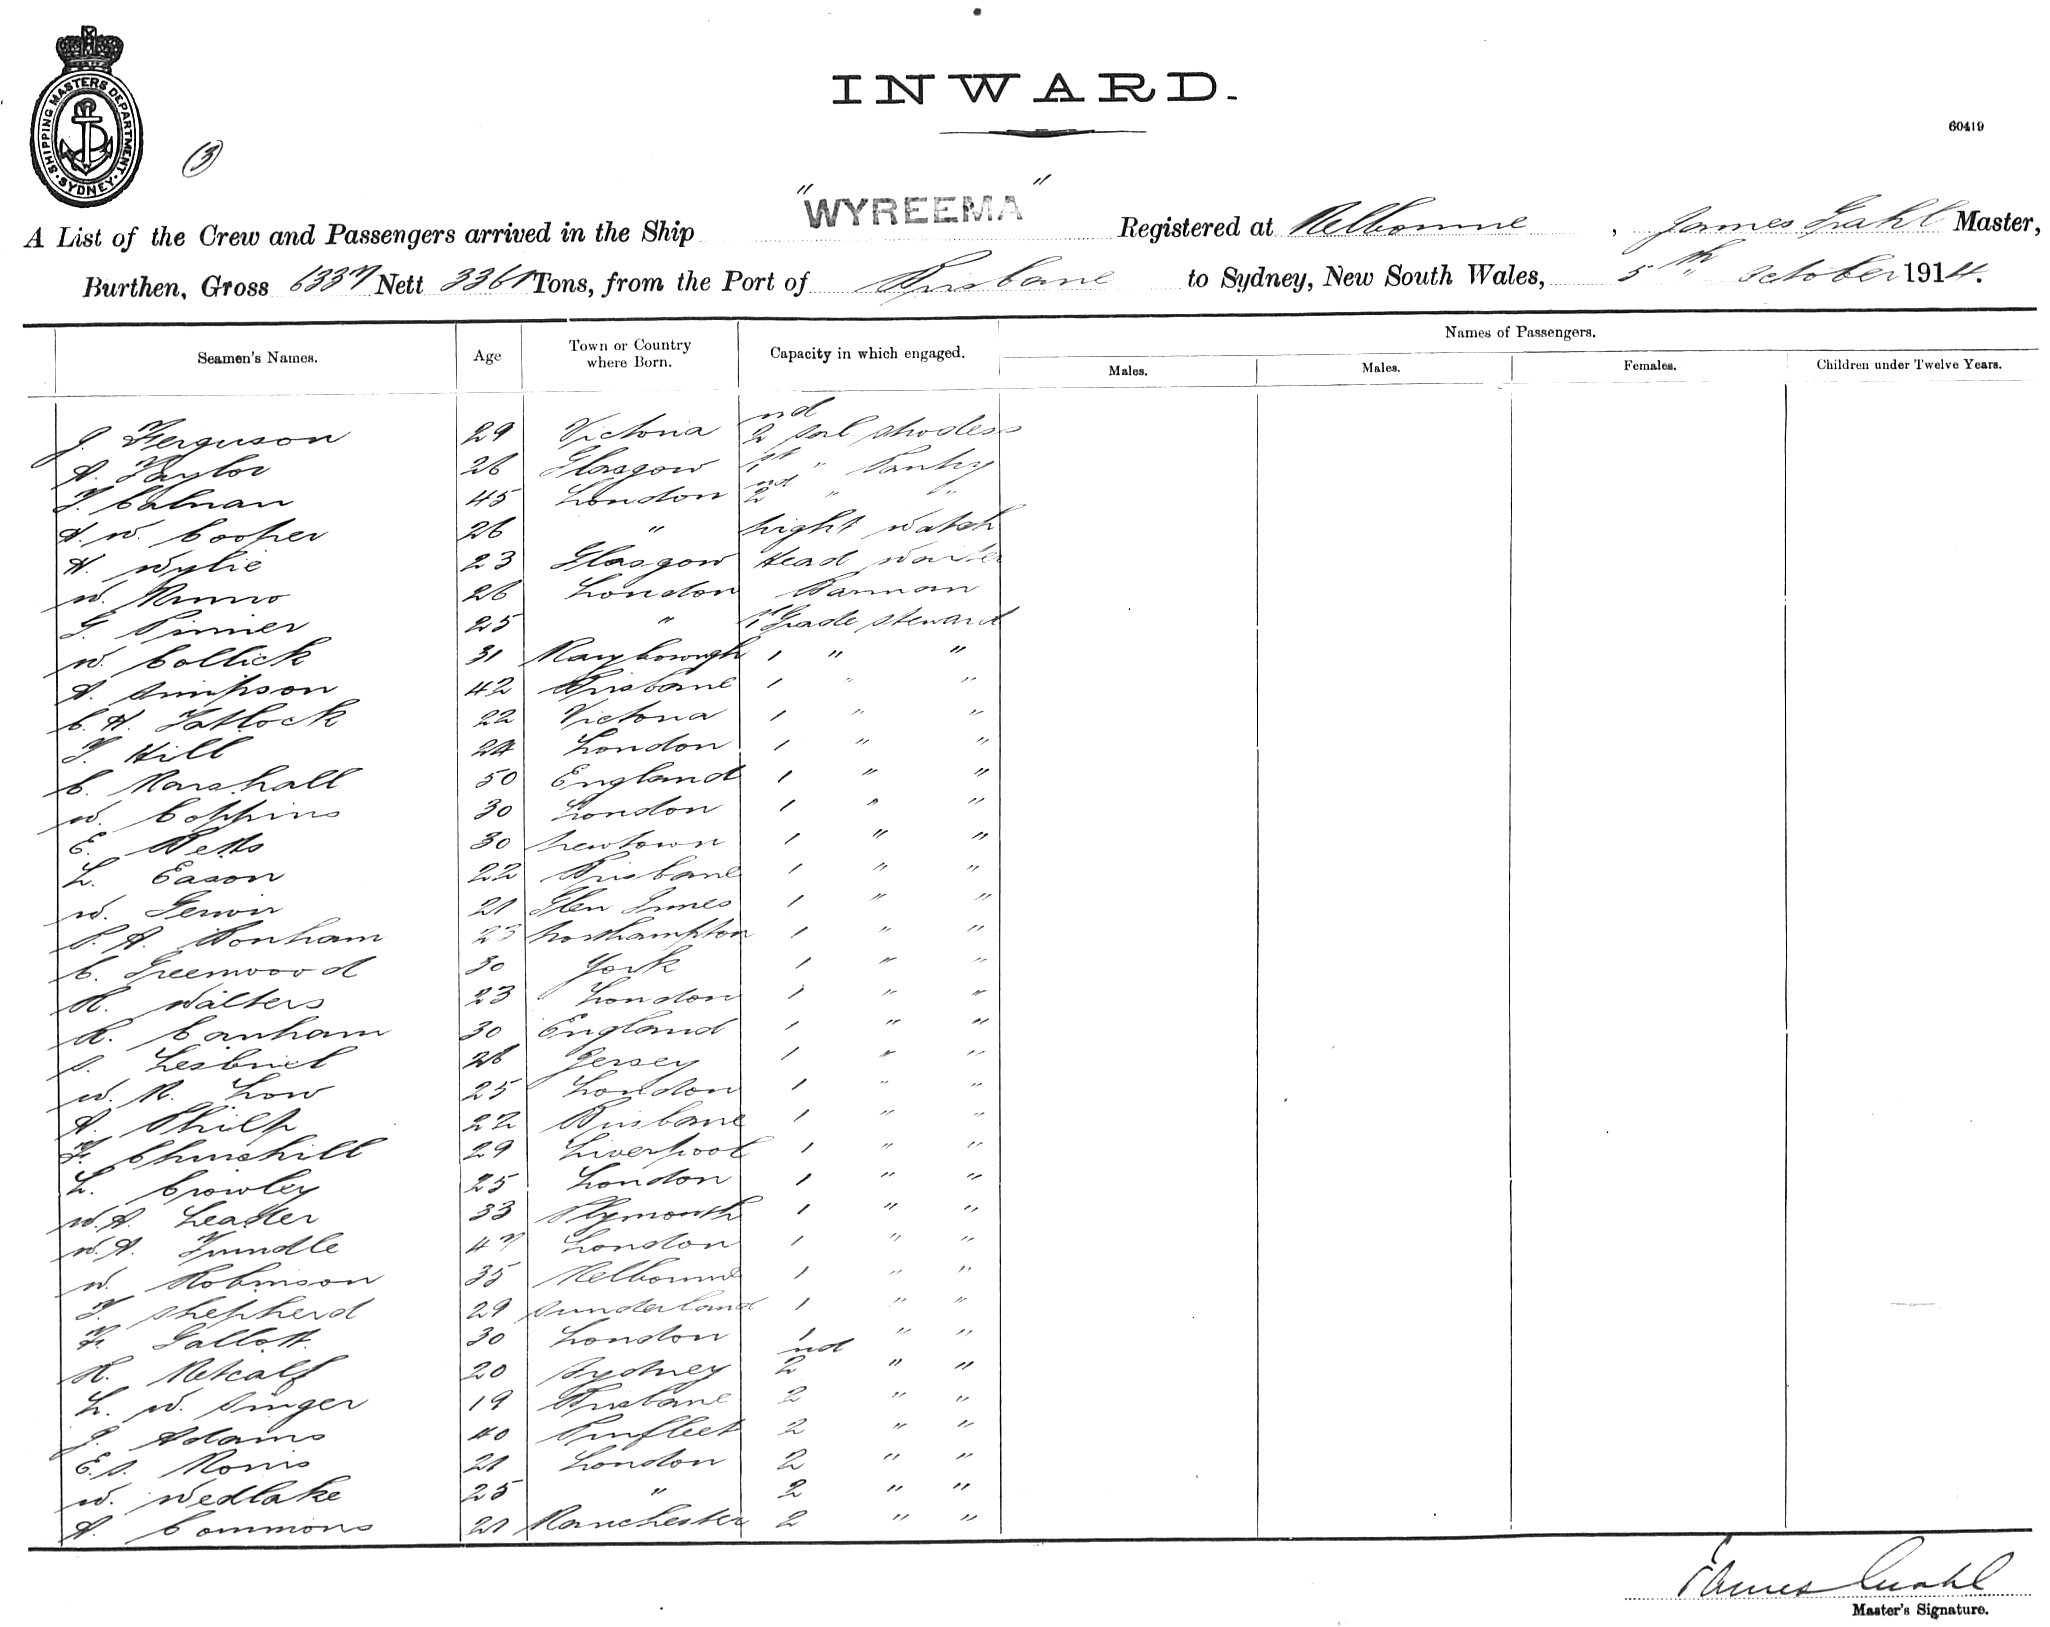 INWARD.
SHIPPING MASTERS DEPARTMENT. SYDNEY
60419
(3)
A List of the Crew and Passengers arrived in the Ship "WYREEMA" Registered at Melbourne, James Grahl Master,
Burthen, Gross 6337 Nett 3361 Tons, from the Port of Brisbane to Sydney, New South Wales, 5th October 1914.
Names of Passengers.
Seamen's Names. Age Town or Country where Born. Capacity in which engaged. Males. Males. Females. Children under Twelve Years.
J. Ferguson 29 Victoria 2nd Sal Stwdess
A. Taylor 26 Glasgow 1st " Pantry
T. Calnan 45 London 2nd " "
A. W. Cooper 26 " Night Watch
A. Wylie 23 Glasgow Head Waiter
W. Munro 26 London Barman
G. Pinner 25 " 1st Grade Steward
W. Collick 31 Maryborough 1 " "
A. Simpson 42 Brisbane 1 " "
C. H. Tatlock 22 Victoria 1 " "
T. Hill 24 London 1 " "
C. Marshall 50 England 1 " "
W. Coppins 30 London 1 " "
E. Betts 30 Newtown 1 " "
L. Eason 22 Brisbane 1 " "
W. 21 Glen Innes 1 " "
P. A. Bonham 23 Northampton 1 " "
C. Greenwood 30 York 1 " "
H. Walters 23 London 1 " "
R. Canham 30 England 1 " "
S. 26 Jersey 1 " "
W. R. Low 25 London 1 " "
A. Philp 22 Brisbane 1 " "
F. Churchill 29 Liverpool 1 " "
L. Crowley 25 London 1 " "
W. A. 33 Plymouth 1 " "
W. A. Trundle 47 London 1 " "
W. Robinson 35 Melbourne 1 " "
T. Shepherd 29 Sunderland 1 " "
F. Gallott 30 London 1 " "
H. Metcalf 20 Sydney 2nd " "
L. W. Singer 19 Brisbane 2 " "
J. Adams 40 Purfleet 2 " "
E. S. Morris 21 London 2 " "
W. Wedlake 25 " 2 " "
A. Commons 21 Manchester 2 " "
James Grahl
Master's Signature.